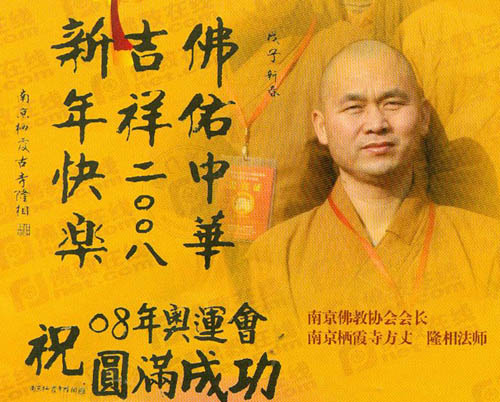 佛佑中華
吉祥二〇〇八
新年快樂
戊子新春
南京栖霞古寺隆相
祝
08年奥運會
圓滿成功
南京佛教协会会长
南京栖霞寺方丈 隆相法师